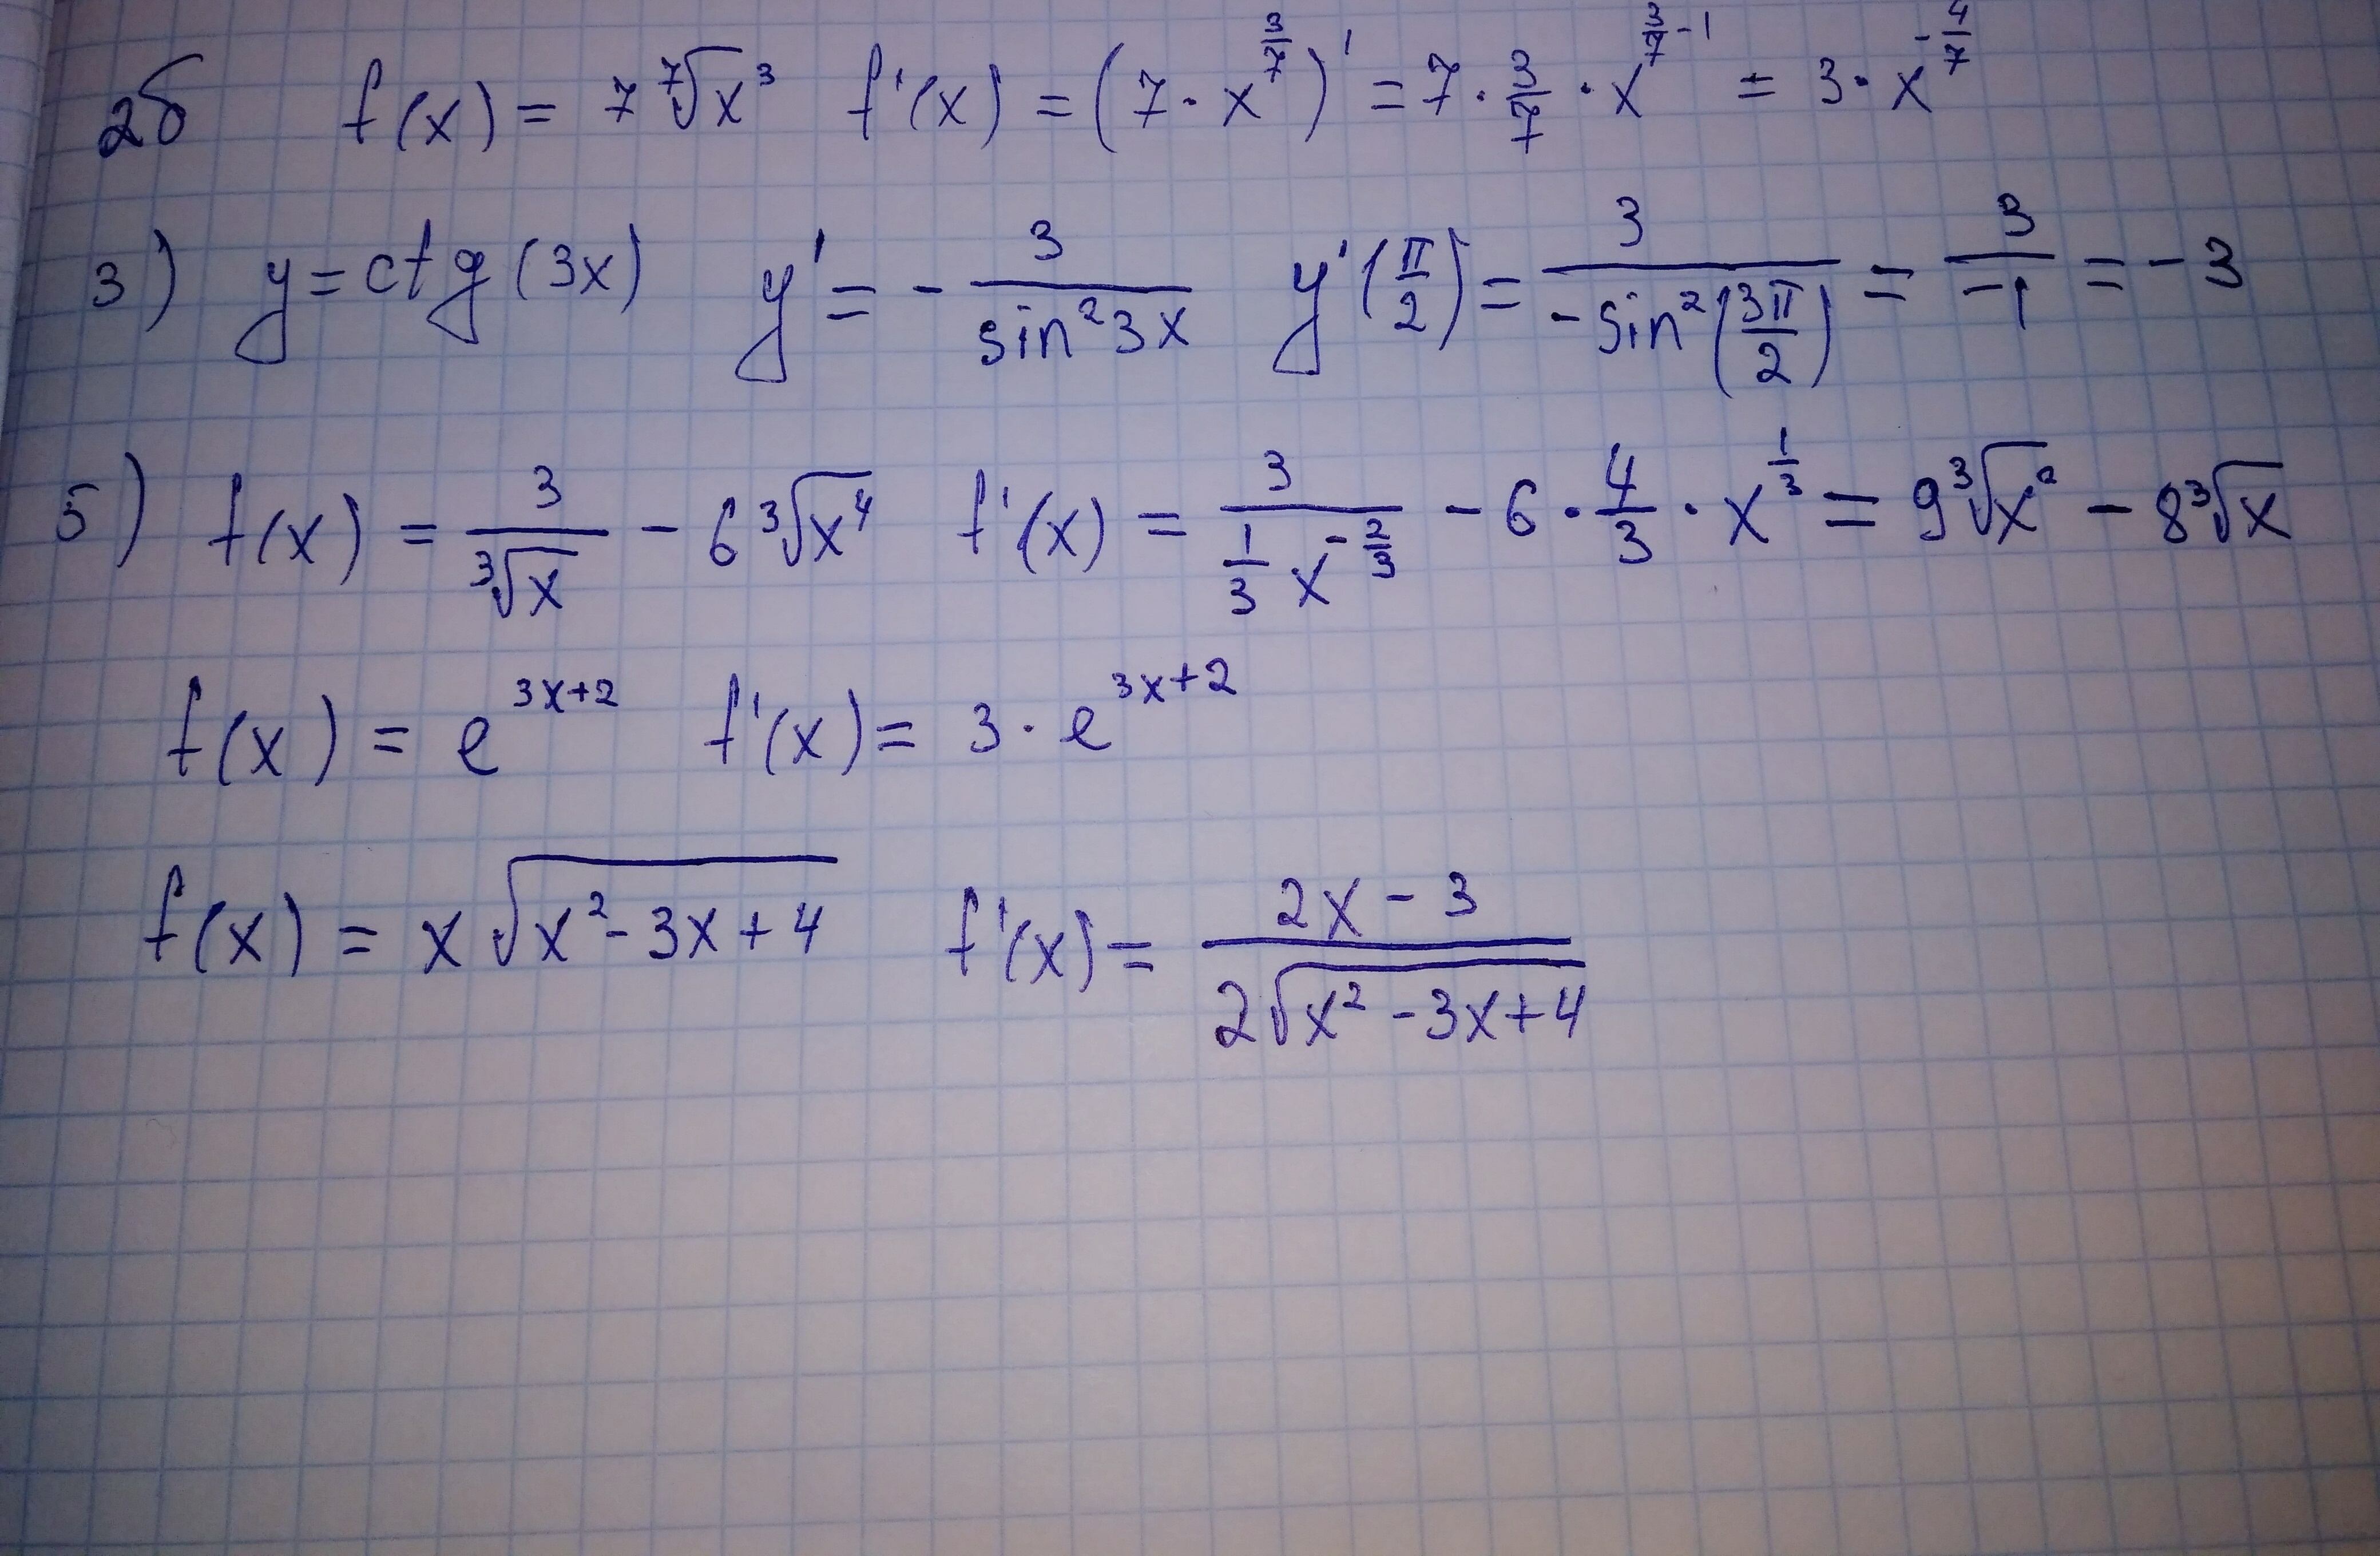 2б f(x) = 7 ⁷√x³ f'(x) = (7·x^(3/7))' = 7·3/7·x^(3/7-1) = 3·x^(-4/7)
3) y = ctg(3x) y' = -3/(sin²3x) y'(π/2) = 3/(-sin²(3π/2)) = 3/(-1) = -3
5) f(x) = 3/(³√x) - 6 ³√x⁴ f'(x) = 3/(1/3 x^(-2/3)) - 6·4/3·x^(1/3) = 9 ³√x² - 8 ³√x
f(x) = e^(3x+2) f'(x) = 3·e^(3x+2)
f(x) = x√(x²-3x+4) f'(x) = (2x-3)/(2√(x²-3x+4))